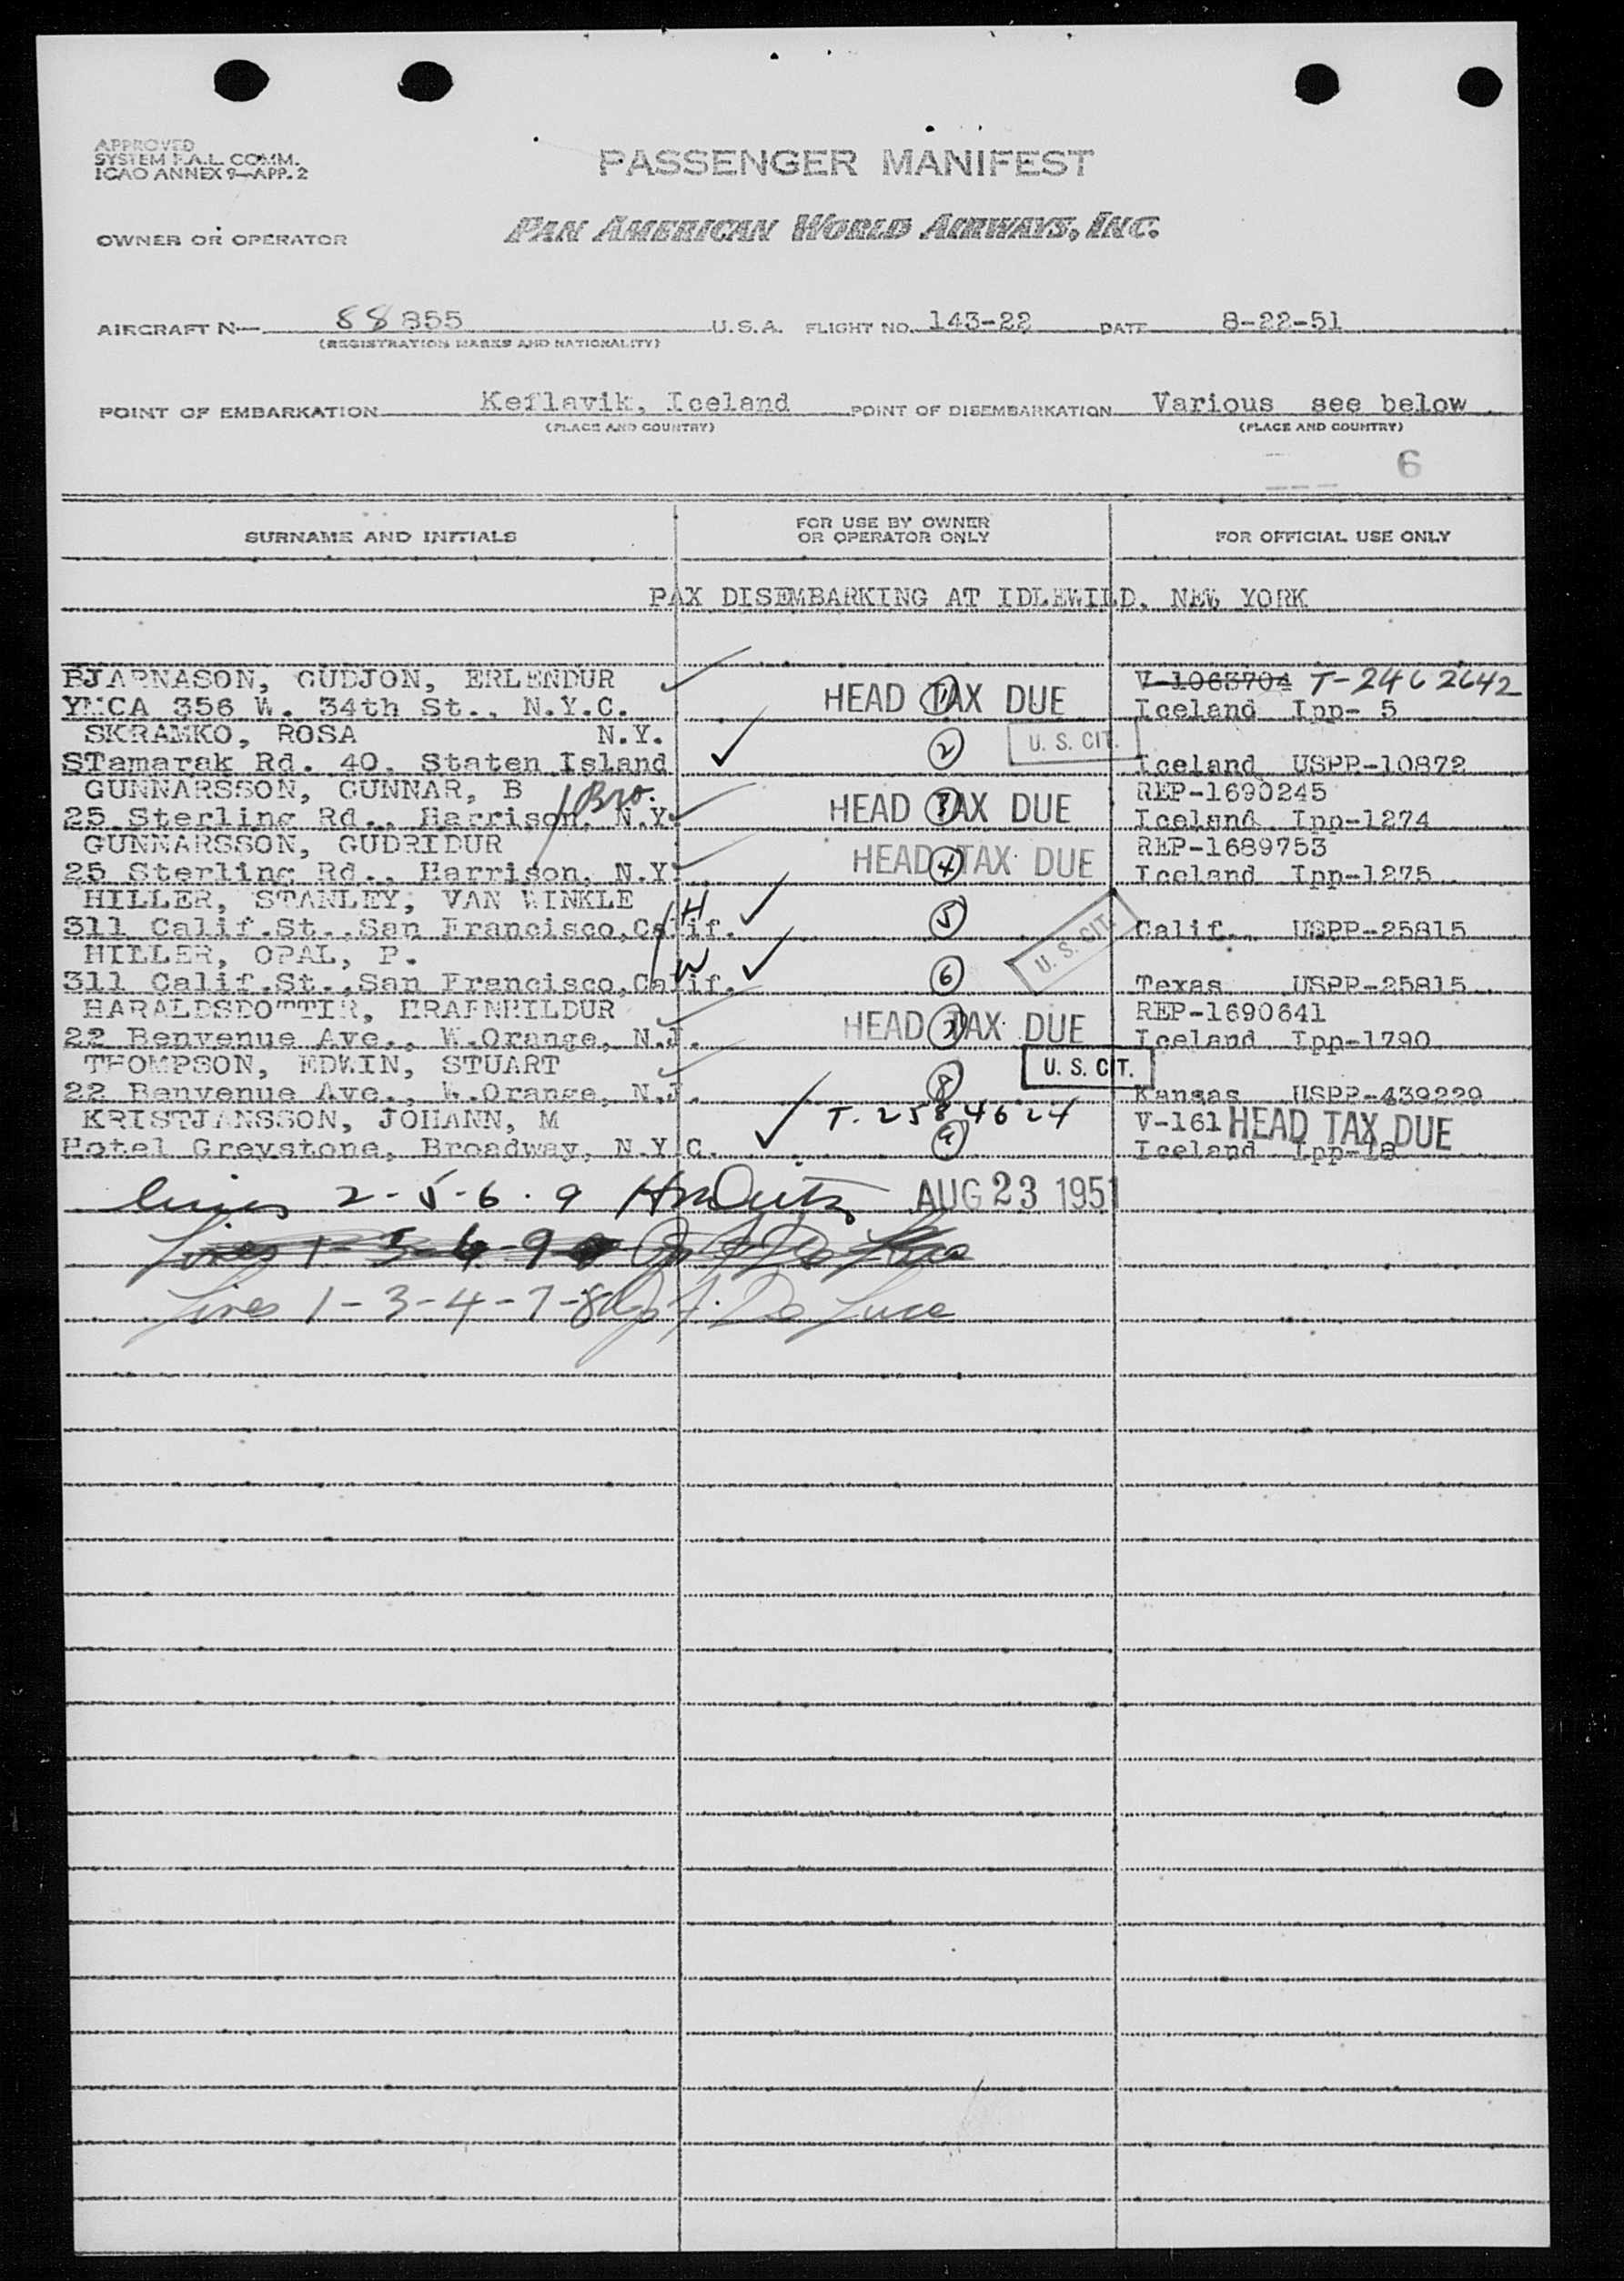 APPROVED
SYSTEM F.A.L. COMM.
ICAO ANNEX 9—APP. 2
PASSENGER MANIFEST
OWNER OR OPERATOR PAN AMERICAN WORLD AIRWAYS, INC.
AIRCRAFT N— 88855 U.S.A. FLIGHT NO. 143-22 DATE 8-22-51
(REGISTRATION MARKS AND NATIONALITY)
POINT OF EMBARKATION Keflavik, Iceland POINT OF DISEMBARKATION Various see below
(PLACE AND COUNTRY) (PLACE AND COUNTRY)
6
SURNAME AND INITIALS FOR USE BY OWNER OR OPERATOR ONLY FOR OFFICIAL USE ONLY
PAX DISEMBARKING AT IDLEWILD, NEW YORK
BJARNASON, GUDJON, ERLENDUR HEAD TAX DUE 1 V-1063704 T-2462642
YMCA 356 W. 34th St., N.Y.C. Iceland Ipp- 5
SKRAMKO, ROSA N.Y. 2 U. S. CIT.
STamarak Rd. 40, Staten Island Iceland USPP-10872
GUNNARSSON, GUNNAR, B Bro. HEAD TAX DUE 3 REP-1690245
25 Sterling Rd., Harrison, N.Y. Iceland Ipp-1274
GUNNARSSON, GUDRIDUR HEAD TAX DUE 4 REP-1689753
25 Sterling Rd., Harrison, N.Y. Iceland Ipp-1275
HILLER, STANLEY, VAN WINKLE H 5
311 Calif.St.,San Francisco,Calif. U. S. CIT. Calif. USPP-25815
HILLER, OPAL, P. W 6
311 Calif.St.,San Francisco,Calif. Texas USPP-25815
HARALDSDOTTIR, HRAFNHILDUR HEAD TAX DUE 7 REP-1690641
22 Benvenue Ave., W.Orange, N.J. Iceland Ipp-1790
THOMPSON, EDWIN, STUART 8 U. S. CIT.
22 Benvenue Ave., W.Orange, N.J. Kansas USPP-439229
KRISTJANSSON, JOHANN, M T-2584624 9 V-161 HEAD TAX DUE
Hotel Greystone, Broadway, N.Y.C. Iceland Ipp-18
lines 2-5-6-9 AUG 23 1951
Lines 1-3-4-7-8 De Luca